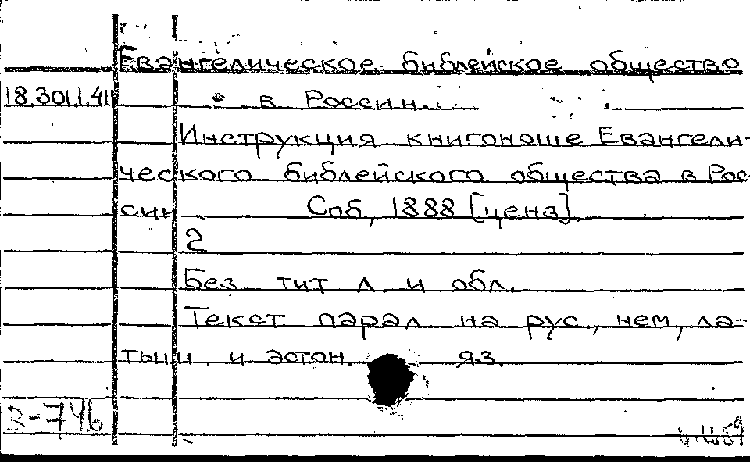 Евангелическое библейское общество
18.301.1.41
в России.
Инструкция книгоноше Евангели-
ческого библейского общества в Рос-
сии. Спб, 1888 [ценз].
2
Без тит л и обл.
Текст парал на рус., нем, ла-
тыш. и эстон. яз.